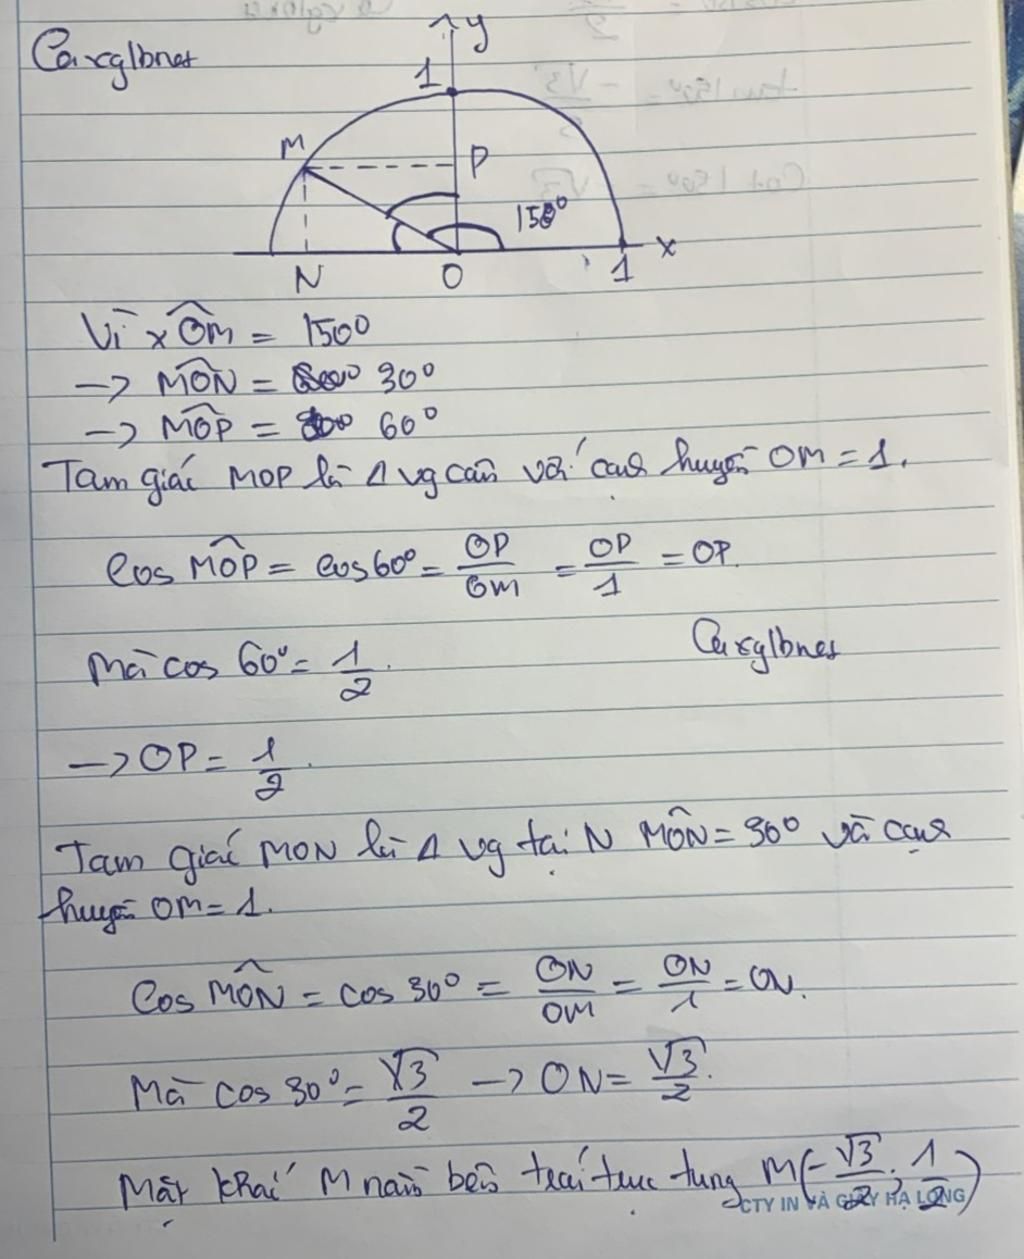 Carxglbnes
y
1
M
P
150°
N
O
1
x
Vì xÔM = 150°
-> MÔN = 30°
-> MÔP = 60°
Tam giác MOP là Δ vg cân với cạnh huyền OM = 1.
Cos MÔP = cos 60° = OP/OM = OP/1 = OP.
Mà cos 60° = 1/2.
Carxglbnes
-> OP = 1/2.
Tam giác MON là Δ vg tại N MÔN = 30° và cạnh
huyền OM = 1.
Cos MÔN = cos 30° = ON/OM = ON/1 = ON.
Mà cos 30° = √3/2 -> ON = √3/2.
Mặt khác M nằm bên trái trục tung M(-√3/2; 1/2)
CTY IN VÀ GIẤY HẠ LONG